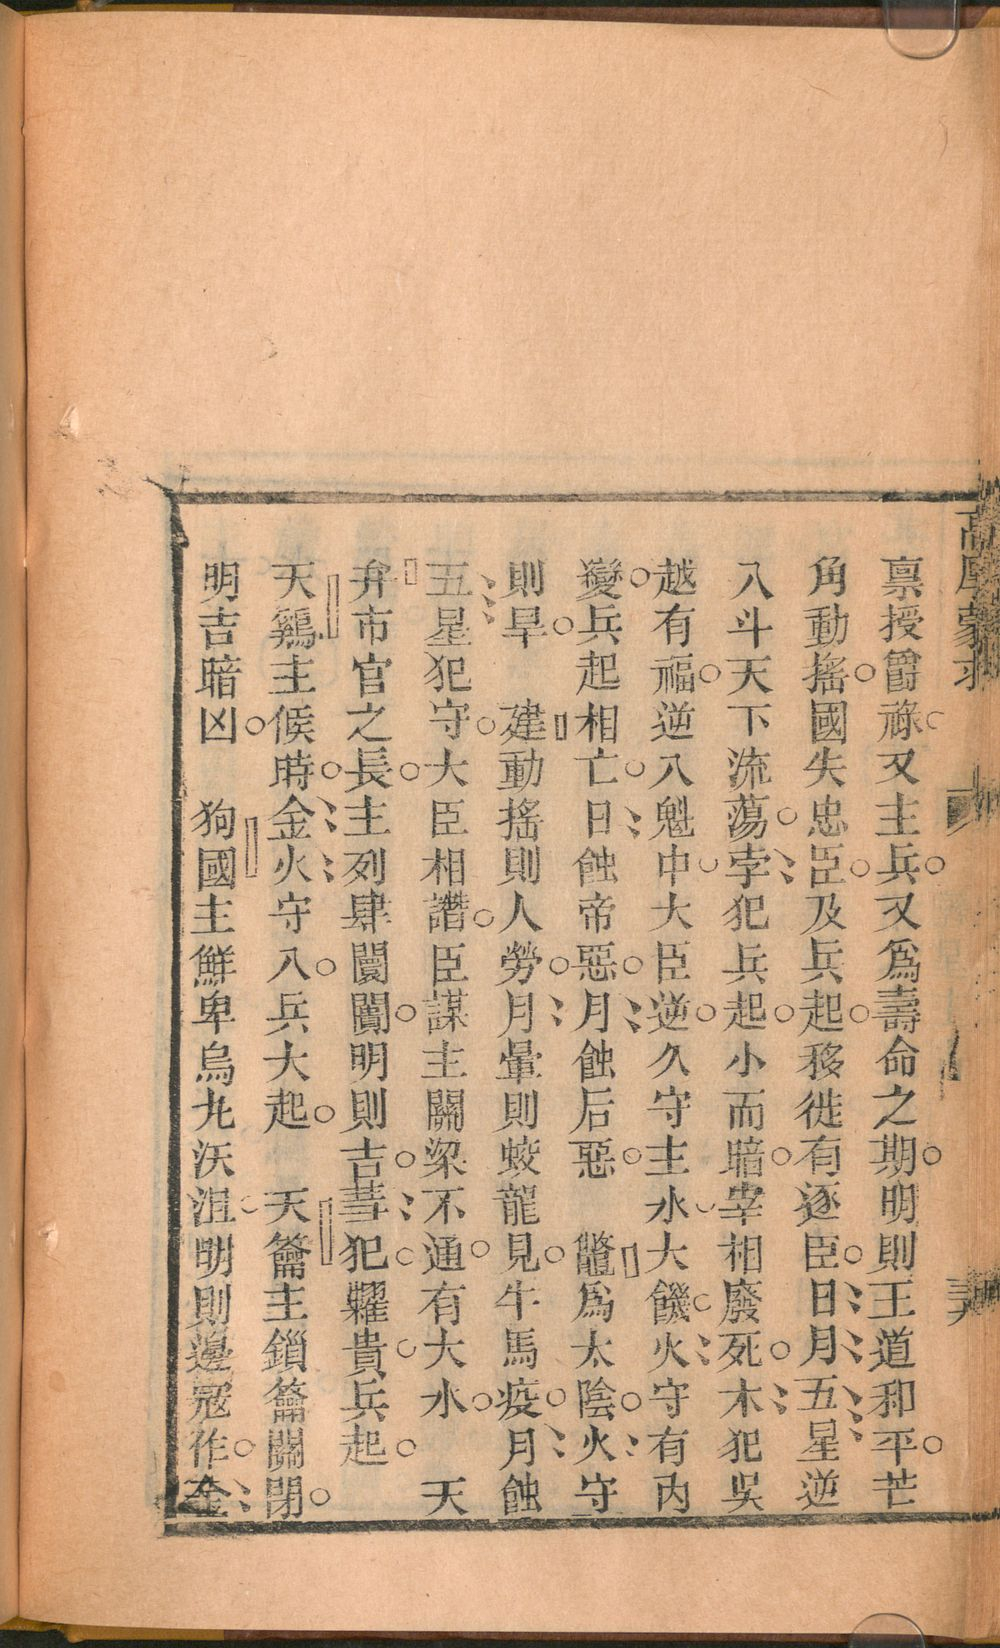 高厚蒙求
稟授爵祿又主兵又爲壽命之期明則王道和平芒
角動搖國失忠臣及兵起移徙有逐臣日月五星逆
入斗天下流蕩孛犯兵起小而暗宰相廢死木犯吳
越有福逆入魁中大臣逆久守主水大饑火守有內
變兵起相亡日蝕帝惡月蝕后惡　鼈爲太陰火守
則旱　建動搖則人勞月暈則蛟龍見牛馬疫月蝕
五星犯守大臣相譖臣謀主關梁不通有大水　天
弁市官之長主列肆闤闠明則吉彗犯糴貴兵起
天鷄主候時金火守入兵大起　天籥主鎖籥關閉
明吉暗凶　狗國主鮮卑烏丸沃沮明則邊寇作金